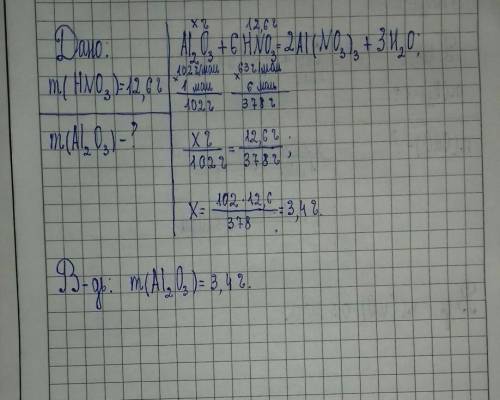 Дано:
m(HNO₃)=12,6г
m(Al₂O₃)-?
xг 12,6г
Al₂O₃+6HNO₃=2Al(NO₃)₃+3H₂O;
×102г/моль ×63г/моль
1 моль 6 моль
102г 378г
xг/102г = 12,6г/378г;
x= 102·12,6/378 =3,4г.
В-дь: m(Al₂O₃)=3,4г.